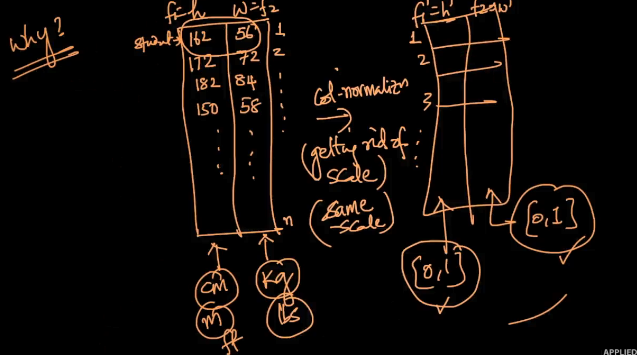 why?
f1=h w=f2
student1 162 56 1
172 72 2
182 84
150 58
n
cm kg
m lbs
ft
col-normalizn
(getting rid of
scale)
(same
scale)
f1'=h' f2=w'
1
2
3
[0,1]
[0,1]
APPLIED